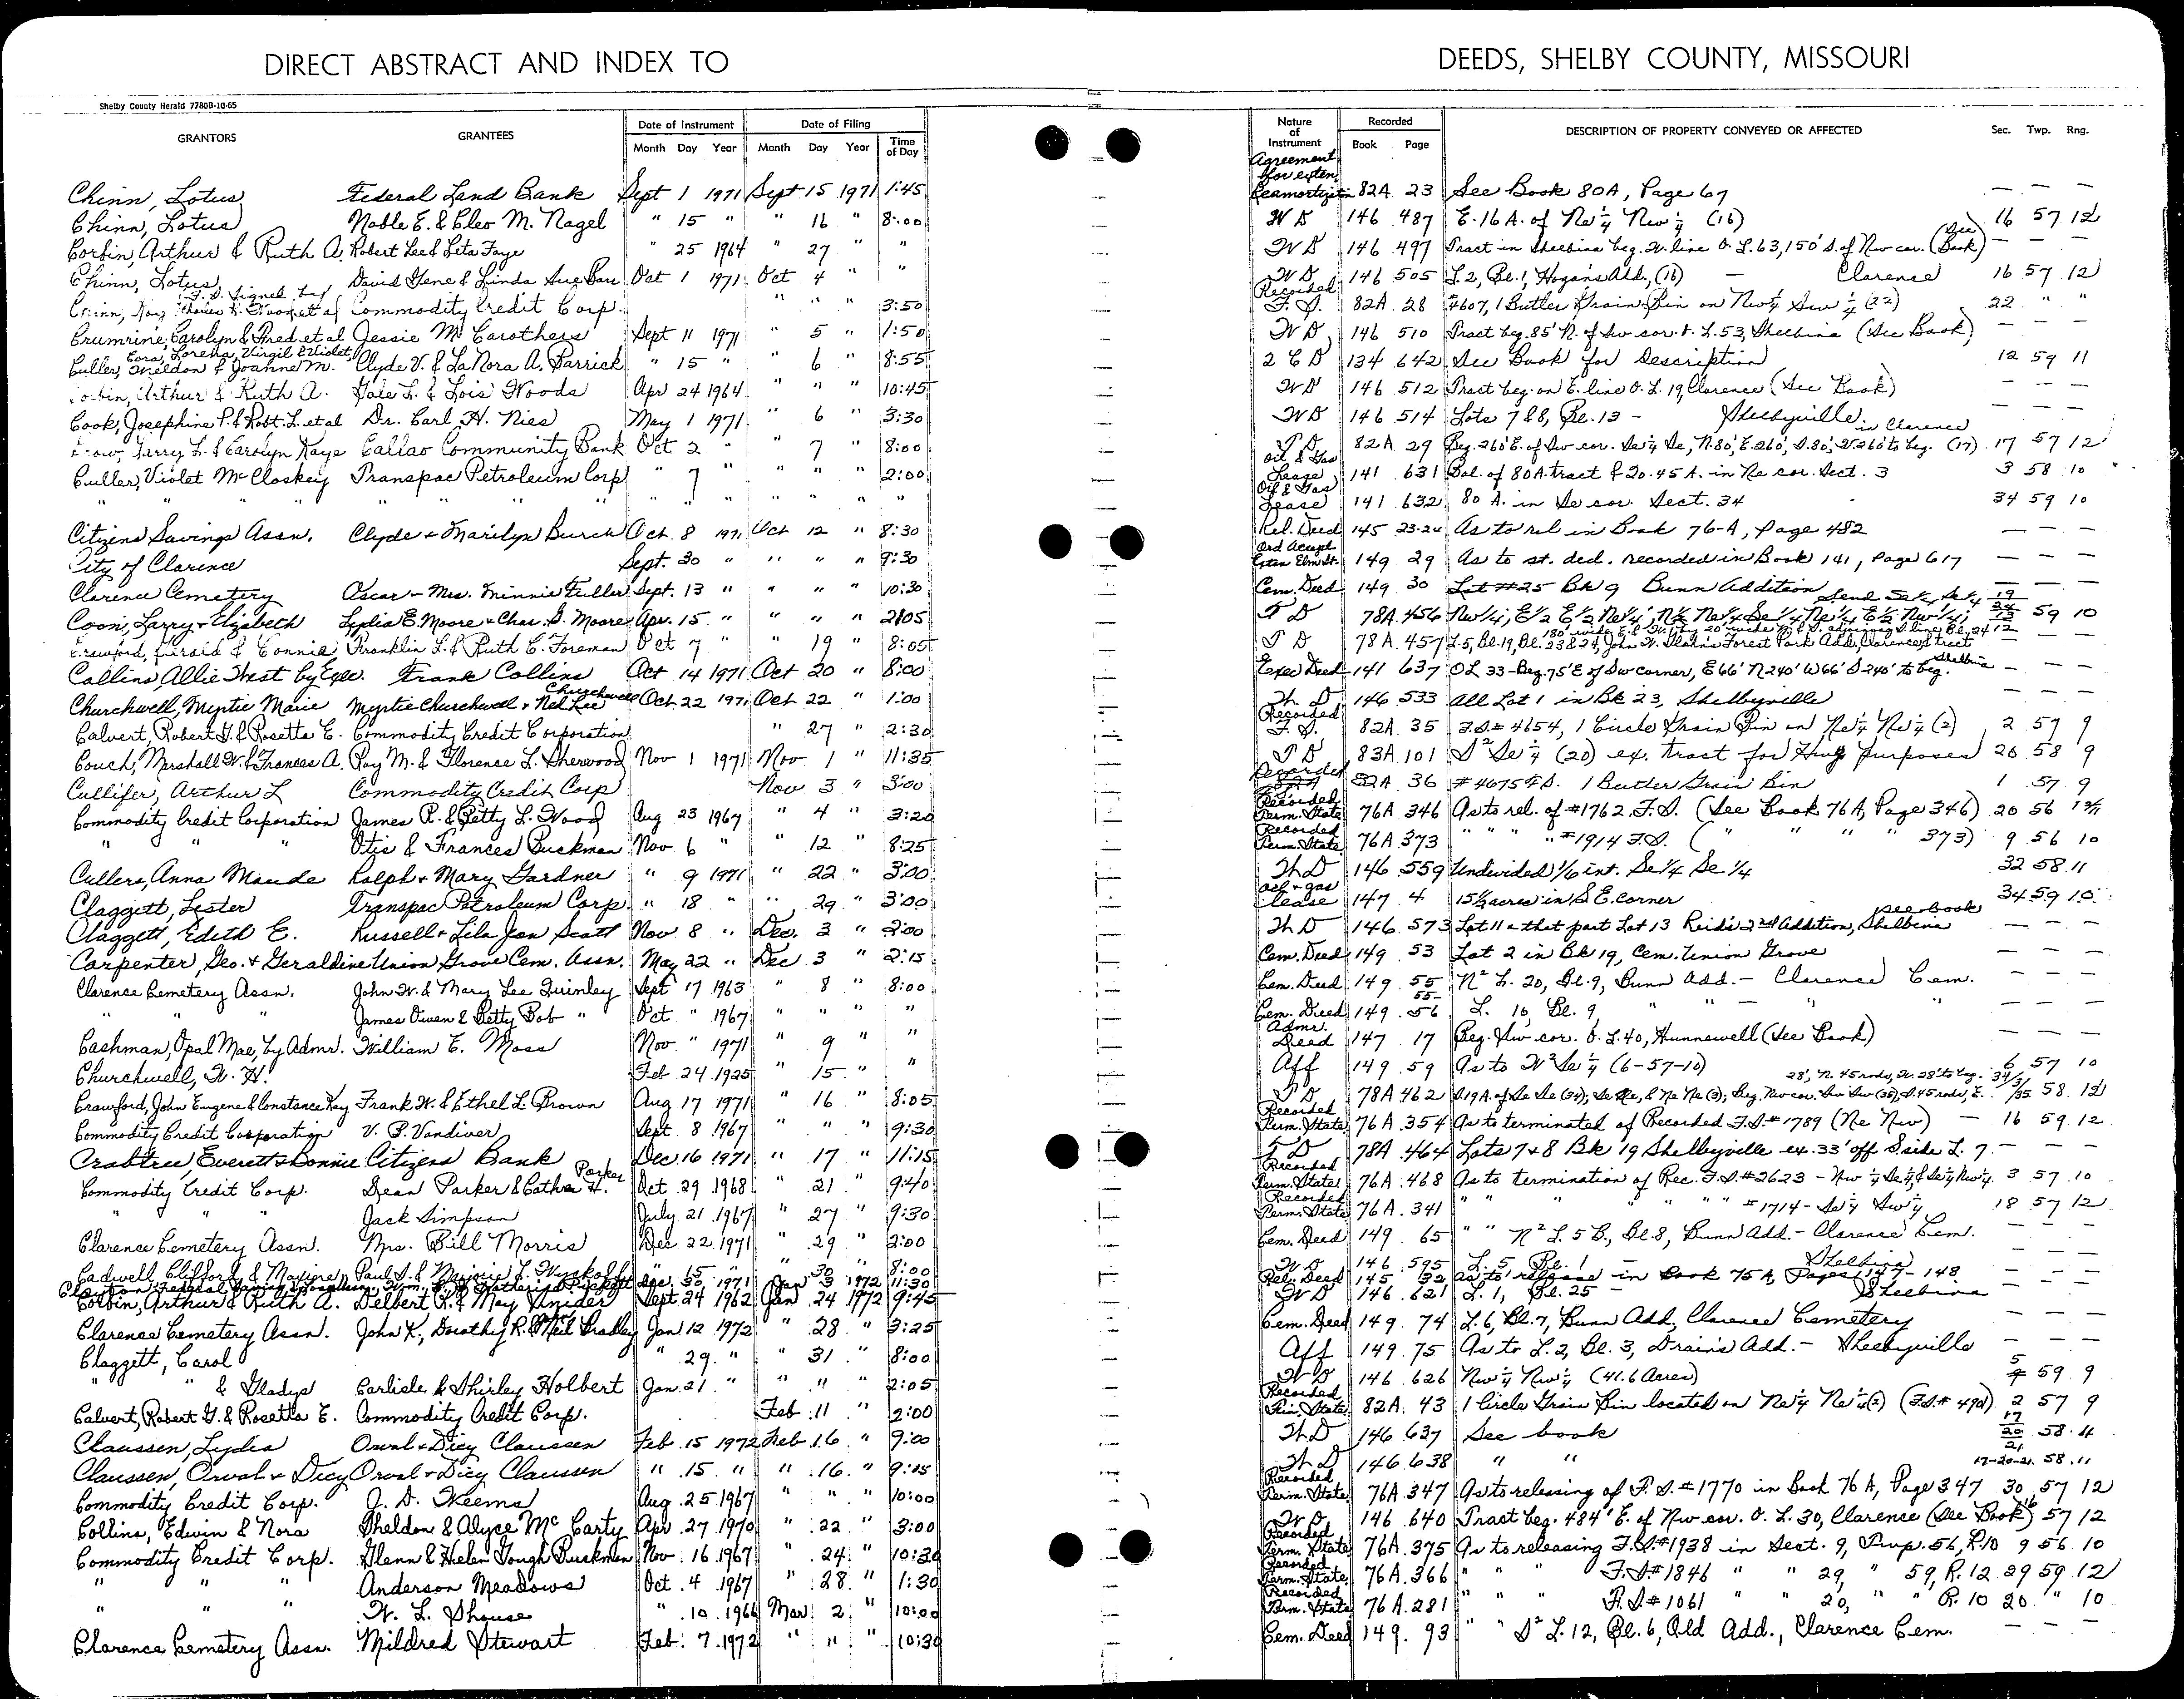 DIRECT ABSTRACT AND INDEX TO DEEDS, SHELBY COUNTY, MISSOURI
Shelby County Herald 7780B-10-65
GRANTORS GRANTEES Date of Instrument Date of Filing Nature of Instrument Recorded DESCRIPTION OF PROPERTY CONVEYED OR AFFECTED Sec. Twp. Rng.
Month Day Year Month Day Year Time of Day Book Page
Agreement for exten.
Chinn, Lotus Federal Land Bank Sept 1 1971 Sept 15 1971 1:45 Reamortization 82A 23 See Book 80A, Page 67 — — —
Chinn, Lotus Noble E. & Cleo M. Nagel " 15 " 16 " 8:00 W D 146 487 E. 16 A. of Ne¼ Nw¼ (16) 16 57 12
Corbin, Arthur & Ruth A. Robert Lee & Leta Faye " 25 1964 " 27 " " W D 146 497 Tract in Shelbina beg. W. line O. L. 63, 150' S. of Nw cor. (See Book) — — —
Chinn, Lotus David Gene & Linda Sue Oct 1 1971 Oct 4 " " W D 146 505 L. 2, Bl. 1, Hogan's Add, (16) — Clarence 16 57 12
F. S. Signed by
Chinn, Commodity Credit Corp. " " " 3:50 Recorded F. S. 82A 28 #4607, 1 Butler Grain Bin on Nw¼ Sw¼ (22) 22 " "
Crumrine, Carolyn & Fred et al Jessie M. Carothers Sept 11 1971 " 5 " 1:50 W D 146 510 Tract beg. 85' N. of Sw cor. O. L. 53, Shelbina (See Book) — — —
Cora, Lorena, Virgil & Violet,
Culler, Sheldon & Joanne M. Clyde V. & LaNora A. Parrick " 15 " 6 " 8:55 2 C D 134 642 See Book for Description 12 59 11
Corbin, Arthur & Ruth A. Gale L. & Lois Woods Apr 24 1964 " " " 10:45 W D 146 512 Tract beg. on E. line O. L. 19, Clarence (See Book) — — —
Cook, Josephine P. & Robt. L. et al Dr. Carl H. Nies May 1 1971 " 6 " 3:30 W D 146 514 Lots 7 & 8, Bl. 13 - Shelbyville — — —
Crow, Larry L. & Carolyn Kaye Callao Community Bank Oct 2 " " 7 " 8:00 T D 82A 29 Beg. 260' E. of Sw cor. Se¼ Se, N. 80', E. 260', S. 80', W. 260' to beg. in Clarence (17) 17 57 12
Culler, Violet McCloskey Transpac Petroleum Corp " 7 " " " " 2:00 Oil & Gas Lease 141 631 Bal. of 80 A. tract & 20.45 A. in Ne cor. Sect. 3 3 58 10
" " " " " " " " " " " Oil & Gas Lease 141 632 80 A. in Se cor. Sect. 34 34 59 10
Citizens Savings Assn. Clyde & Marilyn Burch Oct. 8 1971 Oct 12 " 8:30 Rel. Deed 145 23-24 As to rel in Book 76-A, page 482 — — —
City of Clarence Sept. 30 " " " " 9:30 Ord Accept Exten Elm St. 149 29 As to st. ded. recorded in Book 141, Page 617 — — —
Clarence Cemetery Oscar - Mrs. Minnie Fuller Sept. 13 " " " " 10:30 Cem. Deed 149 30 Lot #25 Bk 9 Bunn Addition — — —
Coon, Larry & Elizabeth Lydia E. Moore & Chas. G. Moore Apr. 15 " " " " 2:05 T D 78A 456 Nw¼; E½ E½ Ne¼; N½ Ne¼ Se¼; Ne¼ E½ Nw¼; 59 10
Crawford, Gerald & Connie Franklin L. & Ruth C. Foreman Oct 7 " " 19 " 8:05 T D 78A 457 L. 5, Bl. 19, Bl. 23 & 24, John W. Glahn's Forest Park Add, Clarence, & tract
Collins, Allie West by Exec. Frank Collins Oct 14 1971 Oct 20 " 8:00 Exec Deed 141 637 OL 33 - Beg. 75' E of Sw corner, E 66' N 240' W 66' S 240' to beg. Shelbina — — —
Churchwell, Myrtie Marie Myrtie Churchwell & Nel Lee Churchwell Oct 22 1971 Oct 22 " 1:00 W D 146 533 All Lot 1 in Bk 23, Shelbyville — — —
Calvert, Robert G. & Rosetta E. Commodity Credit Corporation " 27 " 2:30 Recorded F. S. 82A 35 F.S.# 4654, 1 Circle Grain Bin on Ne¼ Ne¼ (2) 2 57 9
Couch, Marshall W. & Frances A. Roy M. & Florence L. Sherwood Nov 1 1971 Nov 1 " 11:35 T D 83A 101 S² Se¼ (20) ex. tract for Hwy purposes 20 58 9
Cullifer, Arthur L Commodity Credit Corp Nov 3 " 3:00 Recorded 82A 36 # 4675 F.S. 1 Butler Grain Bin 1 57 9
Commodity Credit Corporation James R. & Betty L. Wood Aug 23 1967 " 4 " 3:20 Recorded Term. State 76A 346 As to rel. of #1762 F. S. (See Book 76A, Page 346) 20 56
" " " Otis & Frances Buckman Nov 6 " " 12 " 8:25 Recorded Term. State 76A 373 " " " #1914 F. S. ( " " " " 373) 9 56 10
Cullers, Anna Maude Ralph & Mary Gardner " 9 1971 " 22 " 3:00 W D 146 559 Undivided 1/6 int. Se¼ Se¼ 32 58 11
Claggett, Lester Transpac Petroleum Corp " 18 " " 29 " 3:00 oil & gas lease 147 4 15½ acres in S E. corner 34 59 10
Claggett, Edith E. Russell & Lila Jean Scott Nov. 8 " Dec. 3 " 2:00 W D 146 573 Lot 11 & that part Lot 13 Reid's 2nd Addition, Shelbina see book — — —
Carpenter, Geo. & Geraldine Union Grove Cem. Assn. May 22 " Dec 3 " 2:15 Cem. Deed 149 53 Lot 2 in Bk 19, Cem. Union Grove — — —
Clarence Cemetery Assn. John W. & Mary Lee Quinley Sept 17 1963 " 8 " 8:00 Cem. Deed 149 55 N² L. 20, Bl. 9, Bunn Add. - Clarence Cem. — — —
" " " James Owen & Betty Bob " Oct " 1967 " " " " Cem. Deed 149 56 L. 10, Bl. 9, " " — " " — — —
Cashman, Opal Mae, by Admr. William E. Moss Nov. " 1971 " 9 " " Admr. Deed 147 17 Beg. Sw cor. O. L. 40, Hunnewell (See Book) — — —
Churchwell, W. H. Feb 24 1925 " 15 " " Aff 149 59 As to W² Se¼ (6-57-10) 6 57 10
28', N. 45 rods, W. 28' to beg.
Crawford, John Eugene & Constance Kay Frank W. & Ethel L. Brown Aug 17 1971 " 16 " 8:05 T D 78A 462 58 12
Commodity Credit Corporation V. B. Vandiver Sept. 8 1967 " " " 9:30 Recorded Term. State 76A 354 As to terminated of Recorded F.S.# 1789 (Ne Nw) — 16 59 12
Crabtree, Everett & Bonnie Citizens Bank Dec. 16 1971 " 17 " 11:15 T D 78A 464 Lots 7 & 8 Bk 19 Shelbyville ex. 33' off S. side L. 7. — — —
Commodity Credit Corp. Dean Parker & H. Parker Oct. 29 1968 " 21 " 9:40 Recorded Term. State 76A 468 As to termination of Rec. F.S.# 2623 - Nw¼ Se¼, & Se¼ Nw¼ 3 57 10
" " " Jack Simpson July 21 1967 " 27 " 9:30 Recorded Term. State 76A 341 " " " " " # 1714 - Se¼ Sw¼ 18 57 12
Clarence Cemetery Assn. Mrs. Bill Morris Dec. 22 1971 " 29 " 2:00 Cem. Deed 149 65 " " N² L. 5 B., Bl. 8, Bunn Add. - Clarence Cem. — — —
Cadwell, Clifford & Maxine Paul S. & Marjorie L. Wyckoff " 15 " " 30 " 8:00 W D 146 595 L. 5, Bl. 1 - Shelbina — — —
Dec. 30 1971 Jan 3 1972 11:30 Rel. Deed 145 32 As to release in Book 75A, Pages 147-148 — — —
Corbin, Arthur & Ruth A. Delbert R. & May Snider Sept 24 1962 Jan 24 1972 9:45 W D 146 621 L. 1, Bl. 25 - Shelbina — — —
Clarence Cemetery Assn. John K., Dorothy R. & Neil Bradley Jan 12 1972 " 28 " 3:25 Cem. Deed 149 74 L. 6, Bl. 7, Bunn Add, Clarence Cemetery — — —
Claggett, Carol " 29 " " 31 " 8:00 Aff 149 75 As to L. 2, Bl. 3, Drain's Add. - Shelbyville — — —
" " & Gladys Carlisle & Shirley Holbert Jan. 21 " " " " 2:05 W D 146 626 Nw¼ Nw¼ (41.6 Acres) 5 59 9
Calvert, Robert G. & Rosetta E. Commodity Credit Corp. Feb. 11 " 2:00 Recorded Fin. State 82A 43 1 Circle Grain Bin located on Ne¼ Ne¼ (2) (F.S.# 4901) 2 57 9
Claussen, Lydia Orval & Dicy Claussen Feb. 15 1972 Feb 16 " 9:00 W D 146 637 See book 17 20 21 58 11
Claussen, Orval & Dicy Orval & Dicy Claussen " 15 " " 16 " 9:15 W D 146 638 " " 17-20-21 58 11
Commodity Credit Corp. J. D. Weems Aug. 25 1967 " " " 10:00 Recorded Term. State 76A 347 As to releasing of F. S. # 1770 in Book 76A, Page 347 30 57 12
Collins, Edwin & Nora Sheldon & Alyce McCarty Apr. 27 1970 " 22 " 3:00 W D 146 640 Tract beg. 484' E. of Nw cor. O. L. 30, Clarence (See Book) 16 57 12
Commodity Credit Corp. Glenn & Helen Gough Buckman Nov. 16 1967 " 24 " 10:30 Recorded Term. State 76A 375 As to releasing F.S.# 1938 in Sect. 9, Twp. 56, R. 10 9 56 10
" " " Anderson Meadows Oct. 4 1967 " 28 " 1:30 Recorded Term. State 76A 366 " " " F.S.# 1846 " " 29, " 59, R. 12 29 59 12
" " " W. L. Shouse " 10 1966 Mar. 2 " 10:00 Recorded Term. State 76A 281 " " " F.S.# 1061 " " 20, " " R. 10 20 " 10
Clarence Cemetery Assn. Mildred Stewart Feb. 7 1972 " " " 10:30 Cem. Deed 149 93 " " S² L. 12, Bl. 6, Old Add., Clarence Cem. — — —